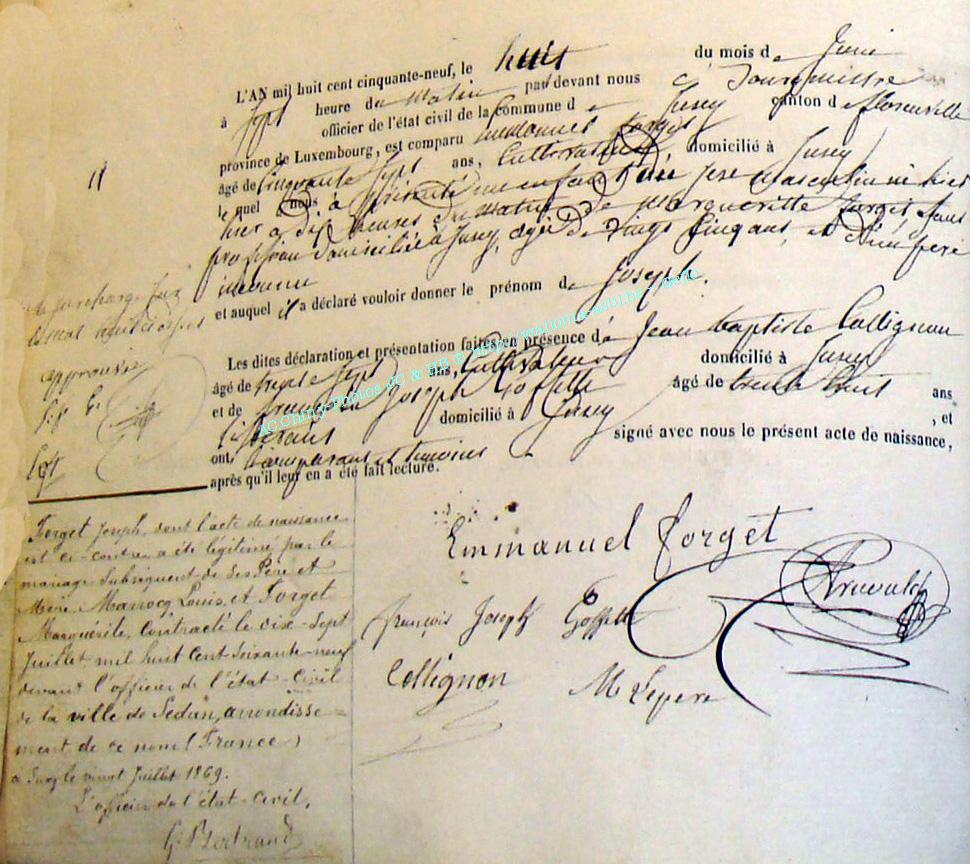 11
L'AN mil huit cent cinquante-neuf, le huit du mois de Juin
à sept heure du matin par devant nous
officier de l'état civil de la Commune de Jusey canton de florenville
province de Luxembourg, est comparu Emmanuel Forget
âgé de Cinquante Sept ans, Cultivateur, domicilié à Jusey
lequel nous a présenté un enfant du sexe masculin né hier
hier à dix heures du matin de Margueritte Forget, sans
profession domiciliée à Jusey, agée de vingt cinq ans, et d'un père
inconnu
et auquel il a déclaré vouloir donner le prénom de Joseph.
Les dites déclaration et présentation faites en présence de Jean baptiste Collignon
âgé de trente sept ans, Cultivateur domicilié à Jusey
et de françois Joseph Goffette âgé de trente huit ans
domicilié à Jusey, et
ont, Comparant et temoins signé avec nous le présent acte de naissance,
après qu'il leur en a été fait lecture.
approuvé
Emmanuel Forget
françois Joseph Goffette
Collignon M Lepere
Forget Joseph, dont l'acte de naissance
est ci-contre, a été légitimé par le
mariage subséquent de ses Père et
Mère, Marrocq Louis, et Forget
Marguérite, Contracté le dix-Sept
Juillet mil huit Cent Soixante-neuf
devant l'officier de l'état-Civil
de la ville de Sedan, arrondisse-
ment de ce nom (France)
le vingt Juillet 1869.
L'officier de l'état-Civil,
G. Bertrand